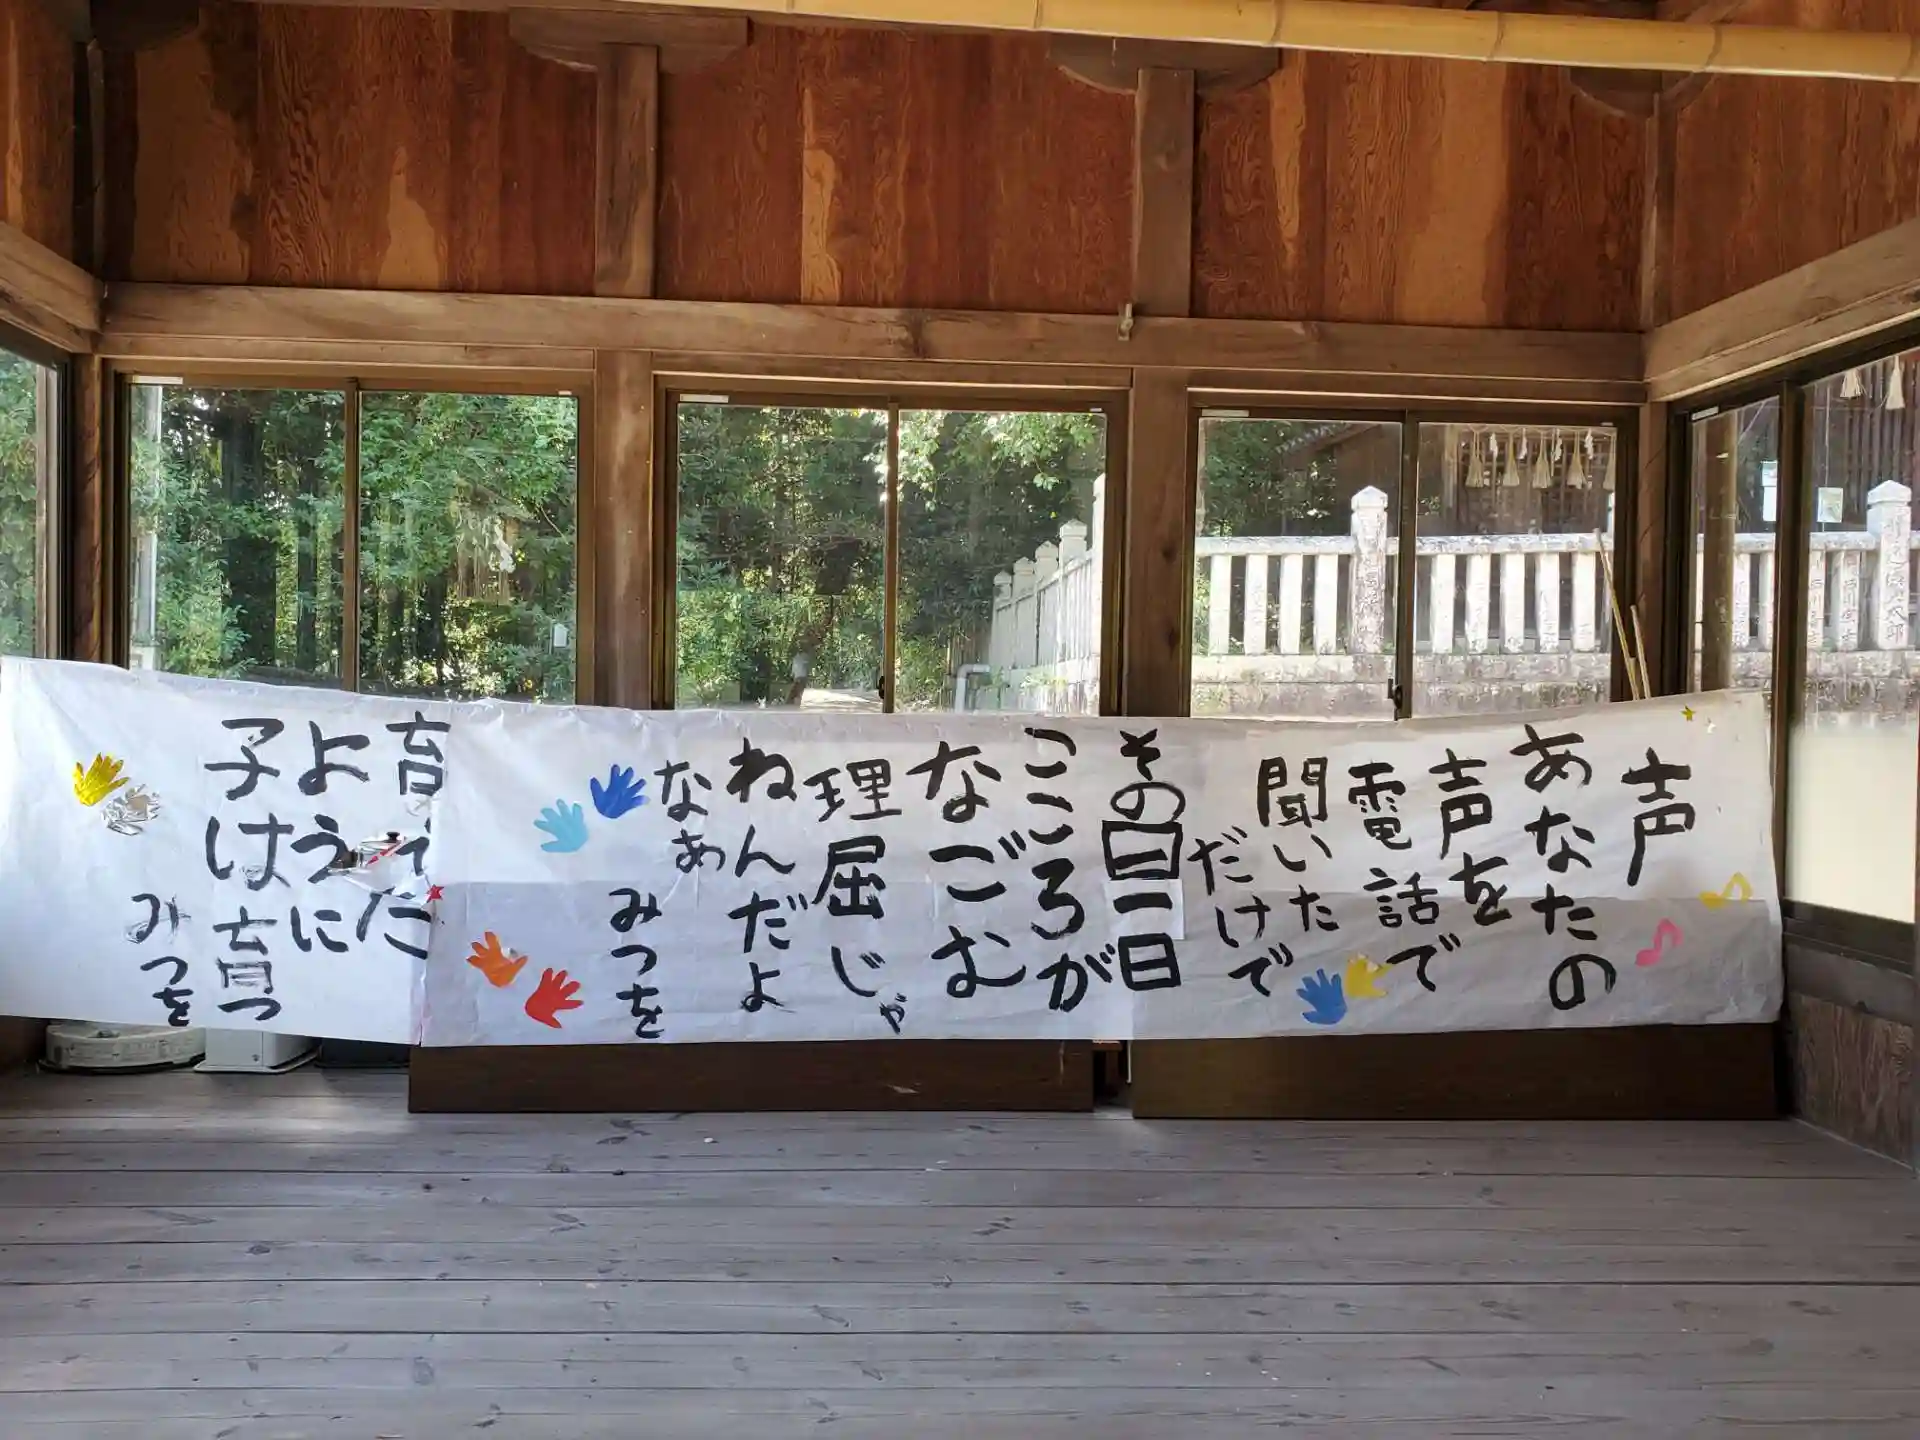 声
あなたの
声を
電話で
聞いた
だけで
その日一日
こころが
なごむ
理屈じゃ
ねんだよ
なあ
みつを
育てた
ように
子は育つ
みつを